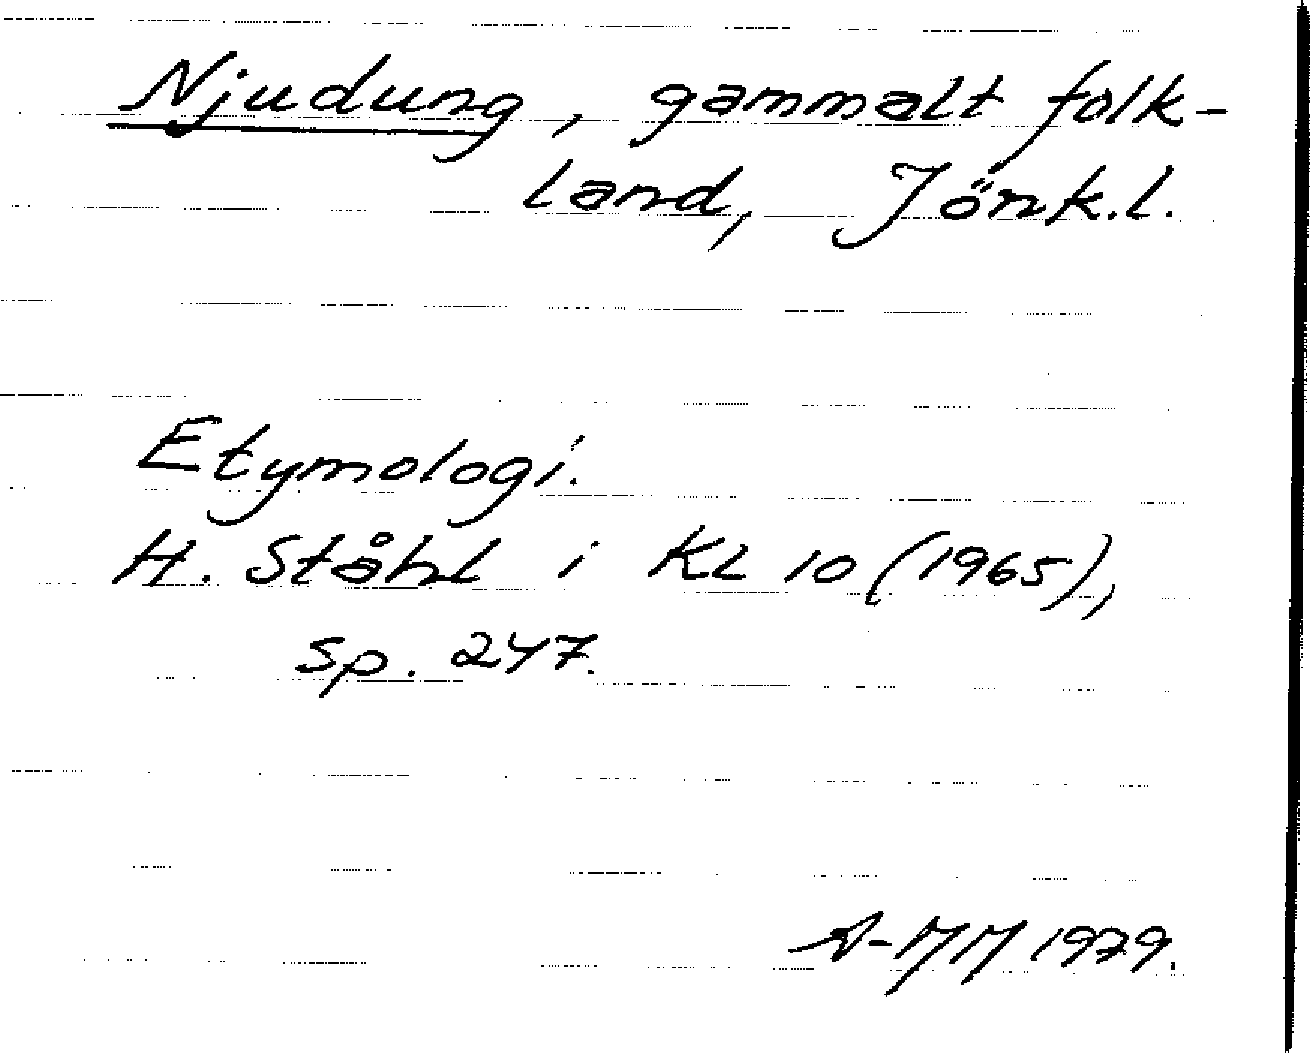 Njudung, gammalt folk-
land, Jönk.l.
Etymologi.
H. Ståhl i KL 10 (1965),
sp. 247.
A-MM 1979.